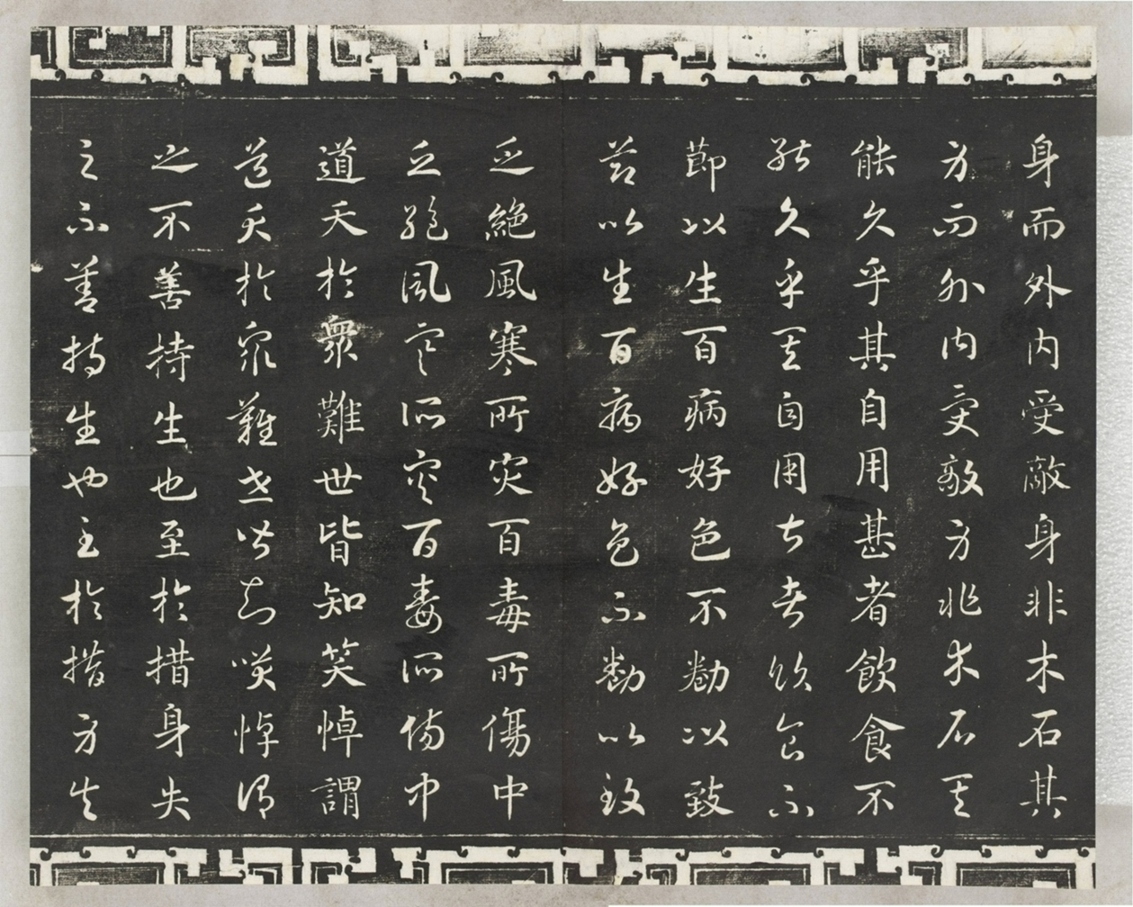 身而外内受敵身非木石其
身而外内受敵身非木石其
能久乎其自用甚者飲食不
能久乎其自用甚者飲食不
節以生百病好色不勌以致
節以生百病好色不勌以致
乏絶風寒所灾百毒所傷中
乏絶風寒所灾百毒所傷中
道夭於衆難世皆知笑悼謂
道夭於衆難世皆知笑悼謂
之不善持生也至於措身失
之不善持生也至於措身失